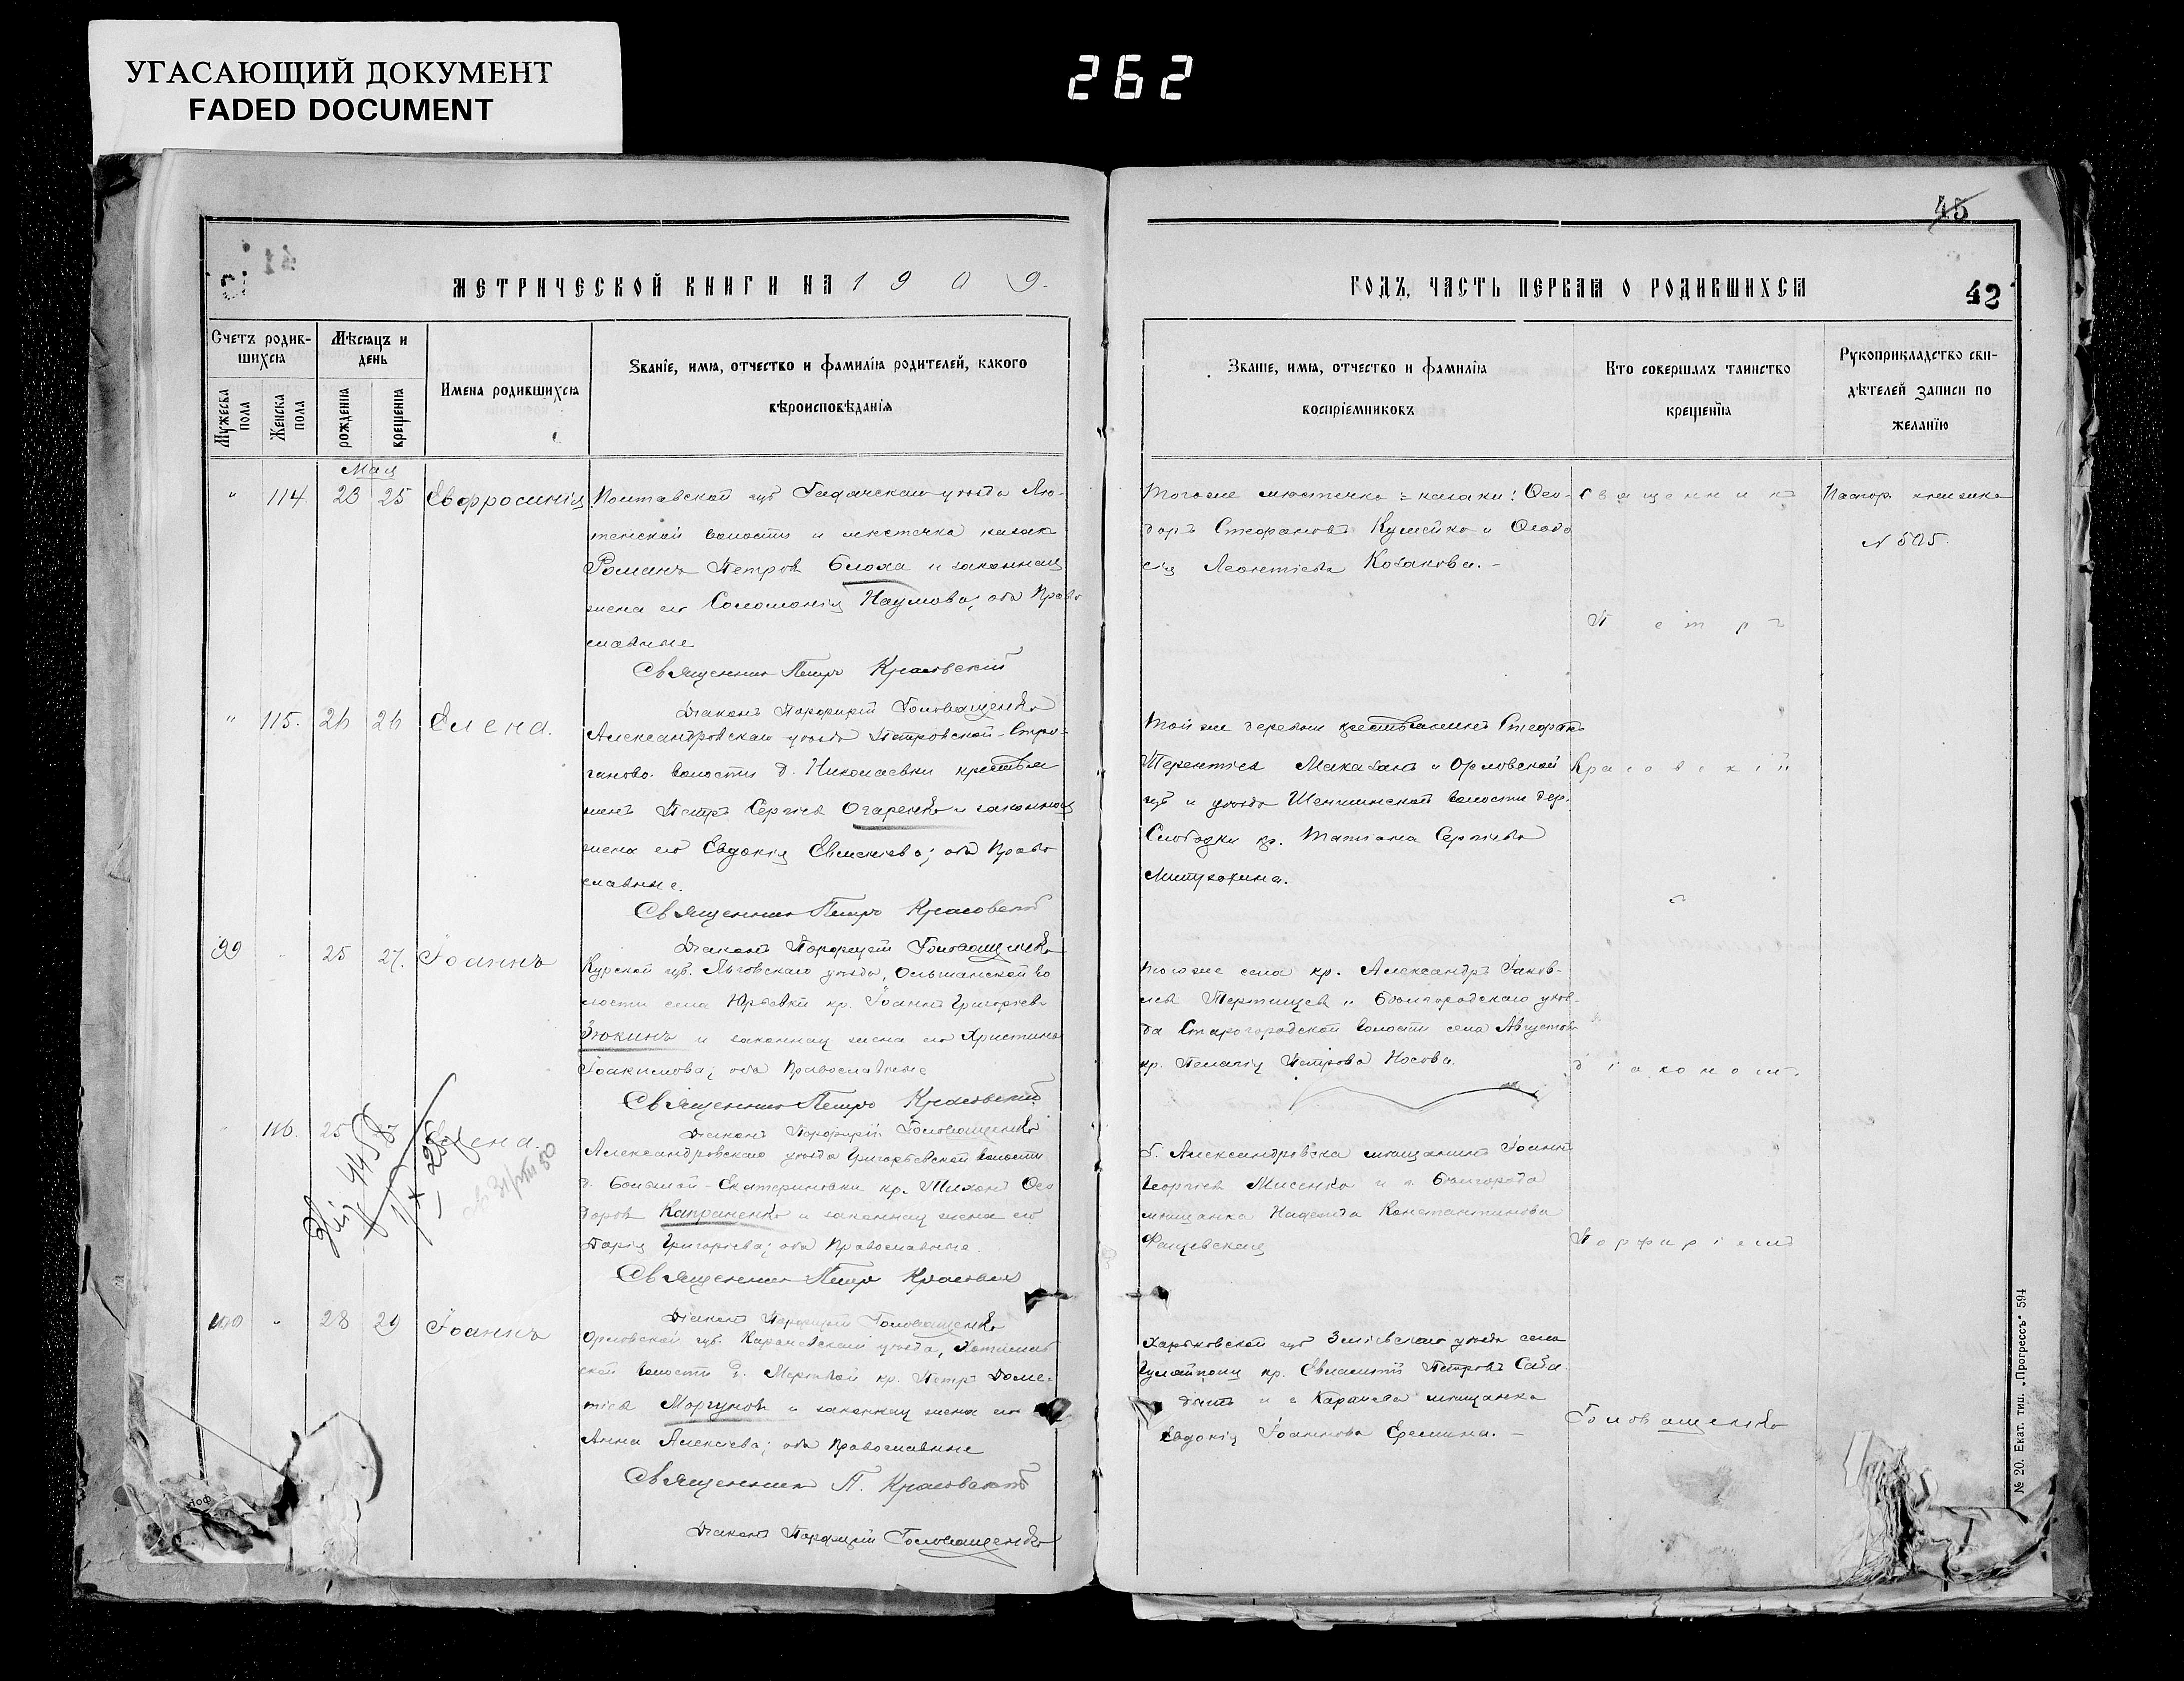 УГАСАЮЩИЙ ДОКУМЕНТ
FADED DOCUMENT
262
45
42
МЕТРИЧЕСКОЙ КНИГИ НА 1909
ГОДЪ, ЧАСТЬ ПЕРВАЯ О РОДИВШИХСЯ
Счетъ родив-
шихся
Мѣсяцъ и
день
Мужеска
пола
Женска
пола
рожденія
крещенія
Имена родившихся
Званіе, имя, отчество и фамилія родителей, какого
вѣроисповѣданія
Званіе, имя, отчество и фамилія
воспріемниковъ
Кто совершалъ таинство
крещенія
Рукоприкладство сви-
дѣтелей записи по
желанію
Мая
" 114. 23 25 Евфросинія
Полтавской губ Гадячскаго уѣзда Лю-
тенской волости и мѣстечка казак
Романъ Петров Блоха и законная
жена его Соломонія Наумова; оба Право
славные
Священник Петръ Красовскій
Діаконъ Порфирій Головащенко
Тогоже мѣстечка казаки: Ѳео-
доръ Стефановъ Кумейко и Ѳеодо
сія Леонтіева Козакова.
Священникъ
Петръ
Паспор. книжка
№ 505.
" 115. 26 26 Елена.
Александровскаго уѣзда Петровской-Стро-
ганово. волости д. Николаевки крестья
нинъ Петръ Сергіев Огаренко и законная
жена его Евдокія Евменіева; оба Право
славные.
Священник Петръ Красовскій
Діаконъ Порфирій Головащенко
Той же деревни крестьянинъ Стефанъ
Терентіев Маказан и Орловской
губ и уѣзда Шеншинской волости дер.
Слободки кр. Татіана Сергіева
Митрохина.
Красовскій
с
99 " 25 27. Іоаннъ
Курской губ. Льговскаго уѣзда, Ольшанской во
лости села Юрьевки кр. Іоаннъ Григоріевъ
Зюкинъ и законная жена его Христина
Іоакимова; оба Православные
Священник Петръ Красовскій
Діаконъ Порфирій Головащенко
тогоже села кр. Александръ Іаков-
лев Тертищев и Бѣлгородскаго уѣз-
да Старогородской волости села Августов
кр. Пелагія Петрова Носова.
діаконом.
" 116. 25 Елена.
Александровскаго уѣзда Григорьевской волости
д. Большой-Екатериновки кр. Тихонъ Ѳео
доров Капраненко и законная жена его
Дарія Григоріева; оба Православные.
Священник Петръ Красовскій
Діаконъ Порфирій Головащенко
г. Александровска мѣщанинъ Іоаннъ
Георгіев Мисенко и г. Бѣлгорода
мѣщанка Надежда Константинова
Фащевская
Порфиріемъ
100 " 28 29 Іоаннъ
Орловской губ. Карачевскаго уѣзда, Хотимль
ской волости д. Мертвой кр. Петръ Доме-
тіев Моргунов и законная жена его
Анна Алексіева; оба православные
Священник П. Красовскій
Діаконъ Порфирій Головащенко
Харьковской губ Зміевскаго уѣзда села
Гуляйполя кр. Евлампій Петровъ Саба
дашъ и г Карачева мѣщанка
Евдокія Іоаннова Еремина.
Головащенко
№ 20. Екат. тип. „Прогрессъ" 594